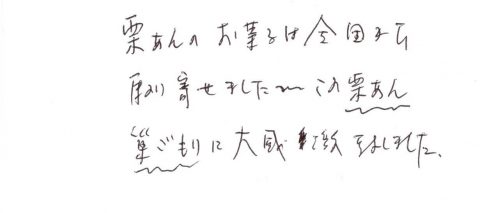 栗あんのお菓子は全国から
取り寄せました〜この栗あん
巣ごもりに大感激致しました。